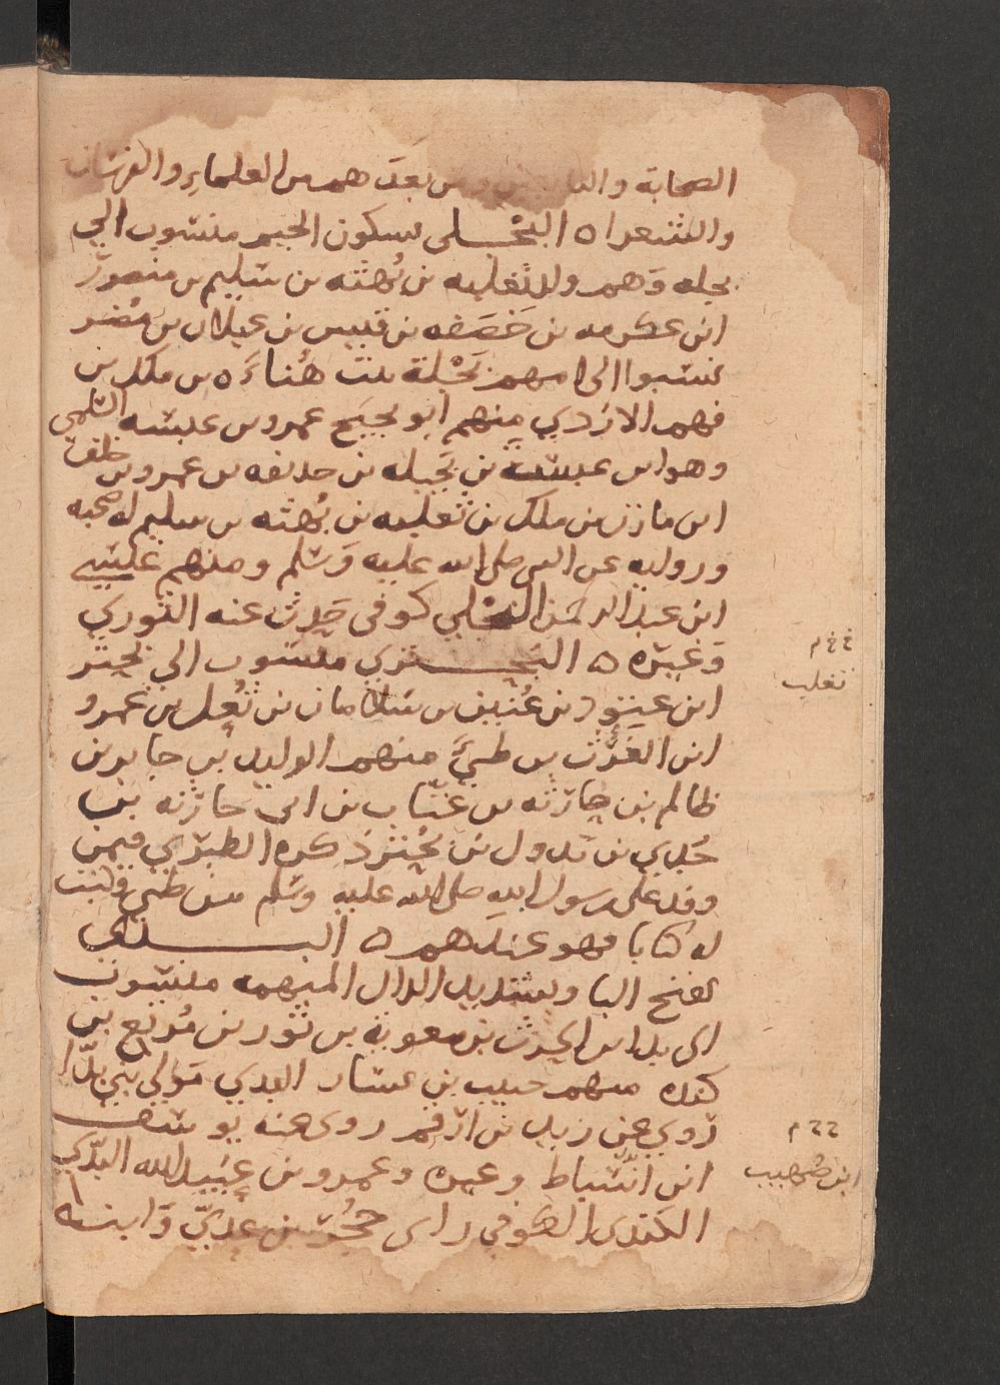 الصحابة والتابعين ومن بعدهم من العلماء والفرسان
والشعرا ه البجلي بسكون الجيم منسوب الي
بجله وهم ولد ثعلبه بن بهثه بن سليم بن منصور
ابن عكرمه بن خصفه بن قيس بن عيلان بن مضر
نسبوا الى امهم بجلة بنت هناءة بن ملك بن
فهم الازدي منهم ابو نجيح عمرو بن عبسه السلمي
وهو ابن عبسة بن بجيله بن حديفه بن عمرو بن خلف
ابن مازن بن ملك بن ثعلبه بن بهثه بن سليم له صحبه
وروايه عن النبي صلى الله عليه وسلم ومنهم عيسي
ابن عبد الرحمن البجلي كوفي حدث عنه الثوري
وغيره ه البحتري منسوب الي بحتر
ابن عتود بن عنين بن سلامان بن ثعل بن عمرو
ابن الغوث بن طيئ منهم الوليد بن جابر بن
ظالم بن حارثه بن عتاب بن ابي حارثه بن
جدي بن تدول بن بحتر ذكره الطبري فيمن
وفد على رسول الله صلى الله عليه وسلم من طيئ وكتب
له كتابا فهو عندهم ه البدي
بفتح البا وتشديد الدال المبهمه منسوب
الى بدا ابن الحرث بن معوية بن ثور بن مرتع بن
كنده منهم حبيب بن يسار البدي مولي بني بدا
روي عن زيد بن ارقم روى عنه يوسف
ابن صهيب وغيره وعمرو بن عبيد الله البدي
الكندي الكوفي راى حجر بن عدي وابنه
ثعلب
ابن صهيب